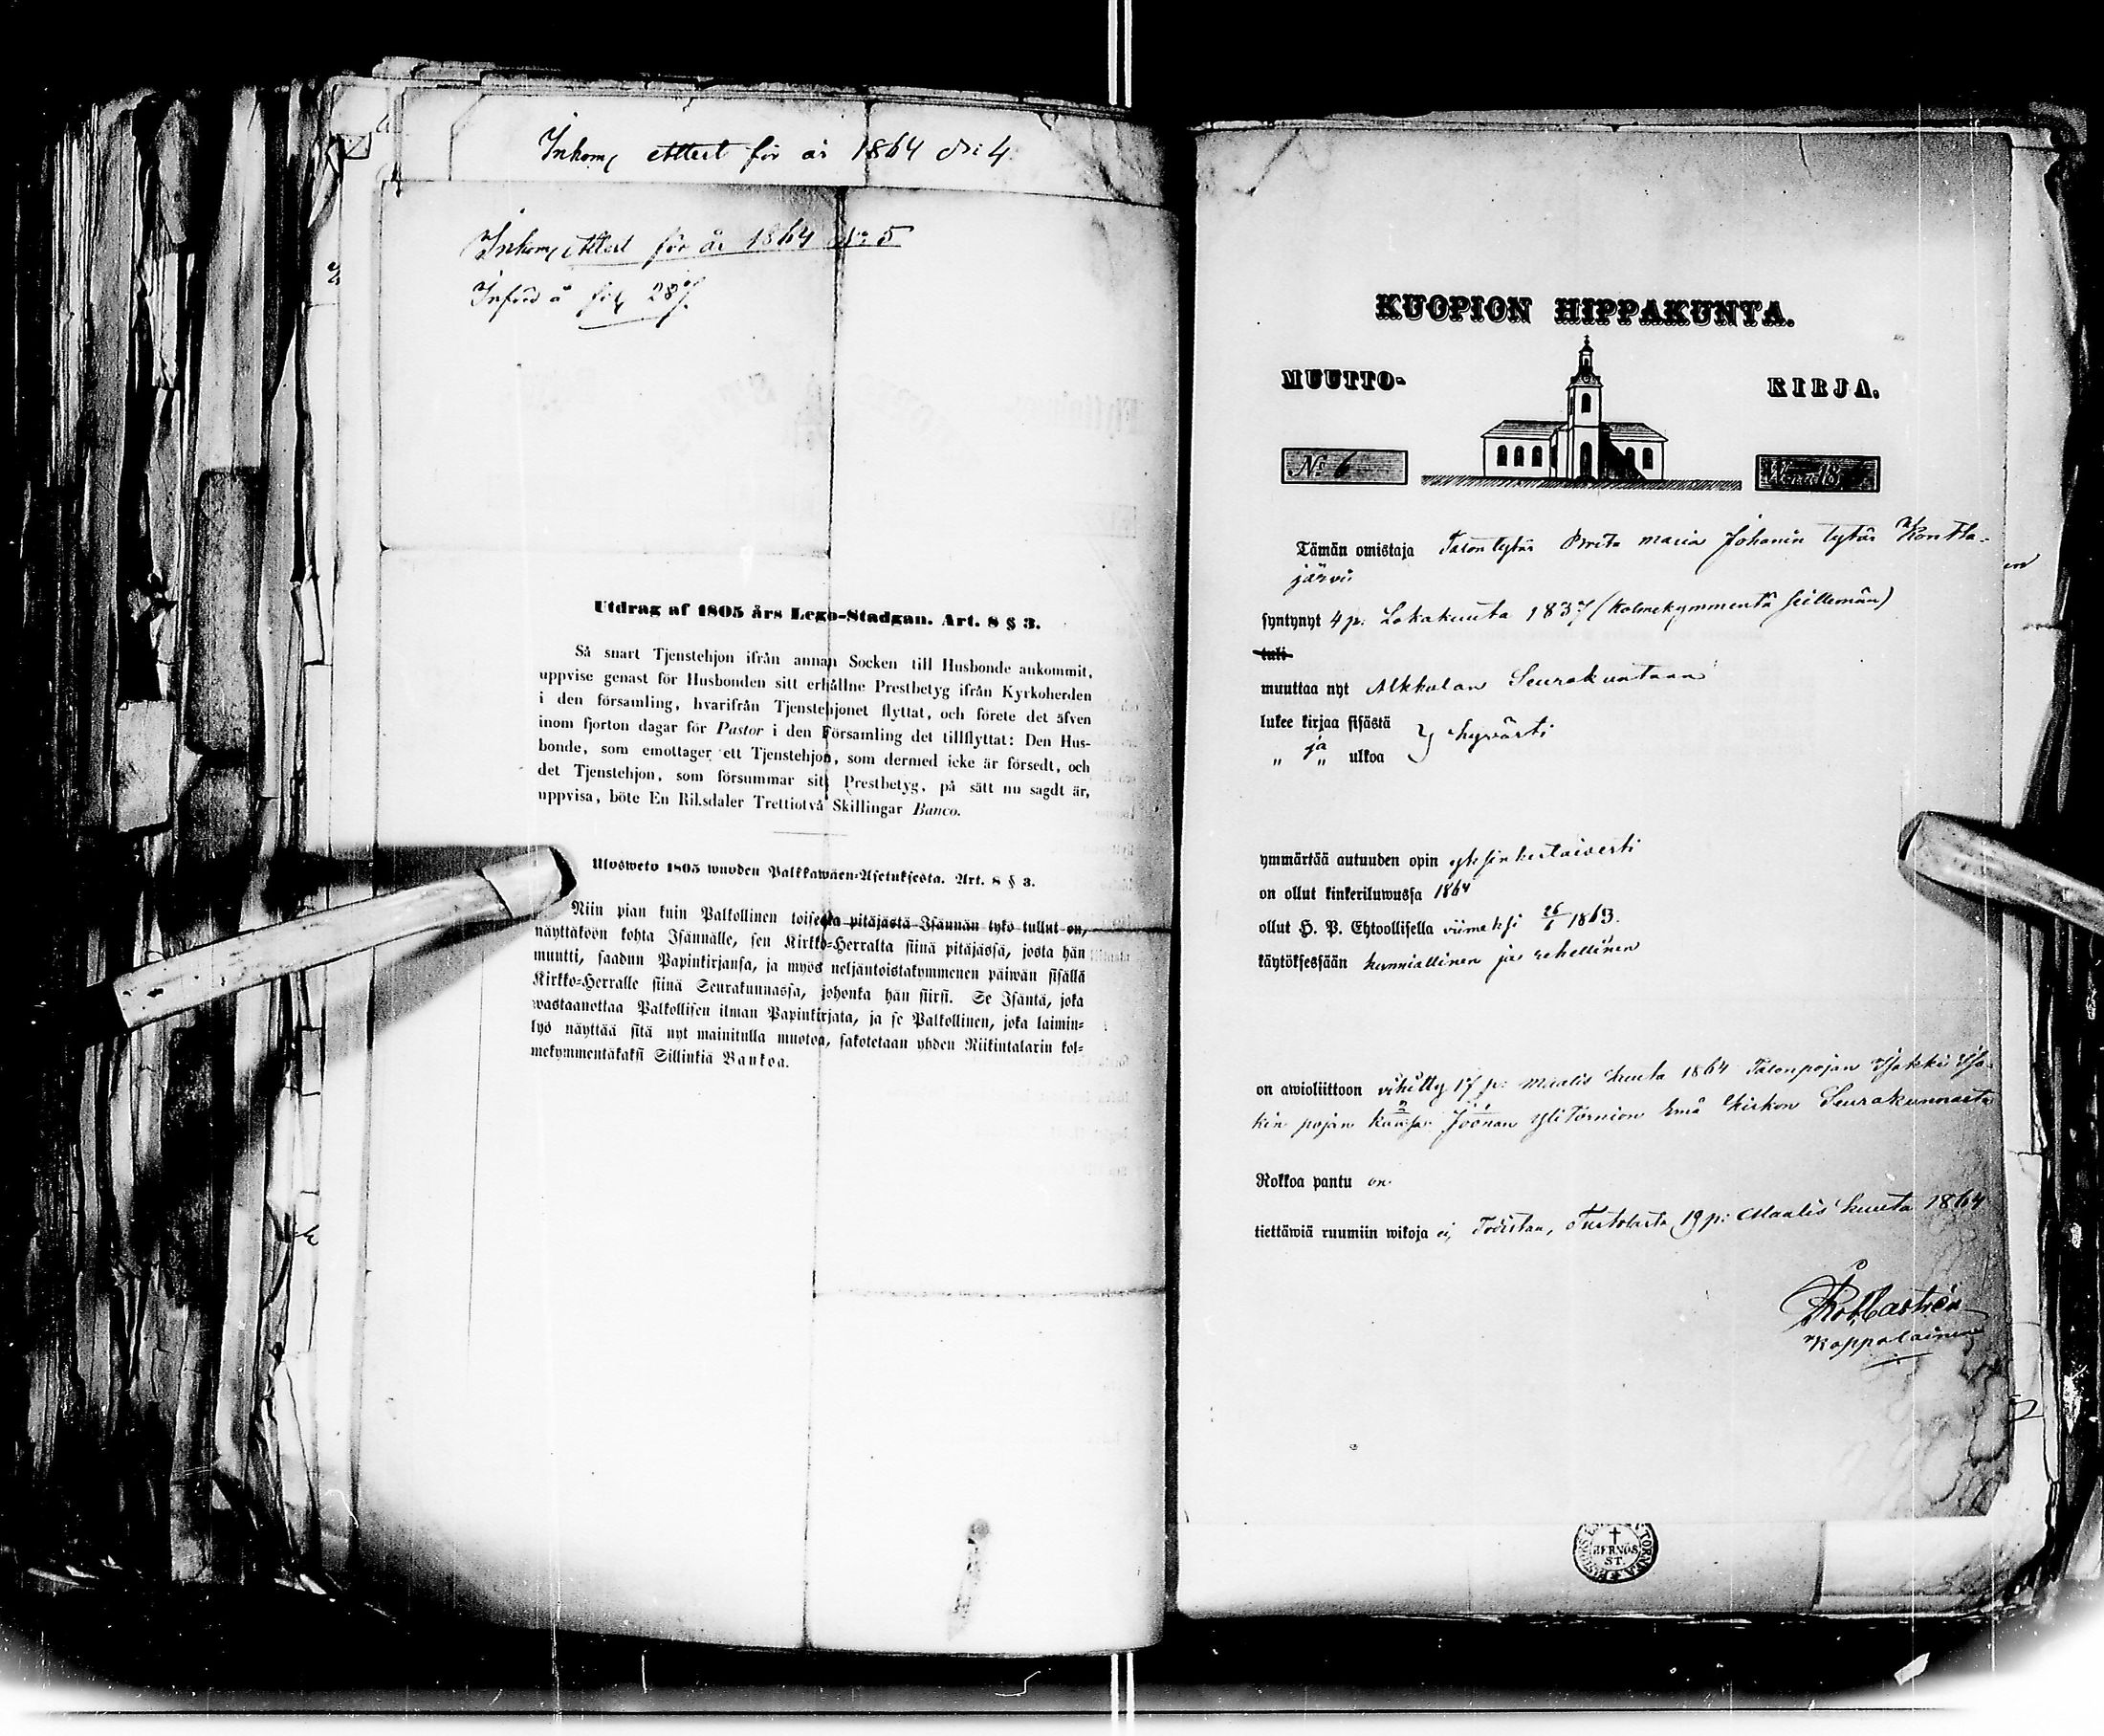 Inkom, attest för år 1864 No: 4
Inkom, attest för år 1864 No: 5
Införd å fol, 287.
Utdrag af 1805 års Lego-Stadgan. Art. 8 § 3.
Så snart Tjenstehjon ifrån annan Socken till Husbonde ankommit,
uppvise genast för Husbonden sitt erhållne Prestbetyg ifrån Kyrkoherden
i den församling, hvarifrån Tjenstehjonet flyttat, och förete det äfven
inom fjorton dagar för Pastor i den Församling det tillflyttat: Den Hus-
bonde, som emottager ett Tjenstehjon, som dermed icke är försedt, och
det Tjenstehjon, som försummar sitt Prestbetyg, på sätt nu sagdt är,
uppvisa, böte En Riksdaler Trettiotvå Skillingar Banco.
Ulosweto 1805 wuoden Palkkawäen-Asetuksesta. Art. 8 § 3.
Niin pian kuin Palkollinen toisesta pitäjästä Isännän tykö tullut on,
näyttäköön kohta Isännälle, sen Kirkko-Herralta siinä pitäjässä, josta hän
muutti, saadun Papinkirjansa, ja myös neljäntoistakymmenen päiwän sisällä
Kirkko-Herralle siinä Seurakunnassa, johonka hän siirsi. Se Isäntä, joka
wastaanottaa Palkollisen ilman Papinkirjata, ja se Palkollinen, joka laimin-
lyö näyttää sitä nyt mainitulla muotoa, sakotetaan yhden Riikintalarin kol-
mekymmentäkaksi Sillinkiä Bankoa.
KUOPION HIPPAKUNTA.
MUUTTO- KIRJA.
No: 6
Tämän omistaja Talontytär Brita maria Johanin tytär Kontta-
järvi
syntynyt 4 p: Lokakuuta 1837 (kolmekymmentä seittemän)
tuli
muuttaa nyt Alkkulan Seurakuntaan
lukee kirjaa sisästä
ja
hyvästi
" " ulkoa
ymmärtää autuuden opin yksinkertaisesti
on ollut kinkeriluwussa 1864
ollut H. P. Ehtoollisella viimeksi 26/6 1863.
käytöksessään kunniallinen ja rehellinen
on awioliittoon vihitty 17 p: maalis kuuta 1864 Talonpojan Isakki Isa-
kin pojan kanssa Ylitornion Emä Kirkon Seurakunnasta
Rokkoa pantu on
tiettäwiä ruumiin wikoja ei, Todistaa, Turtolasta 19 p: Maalis kuuta 1864
Castrén
Kappalainen
HERNÖS.
ST.